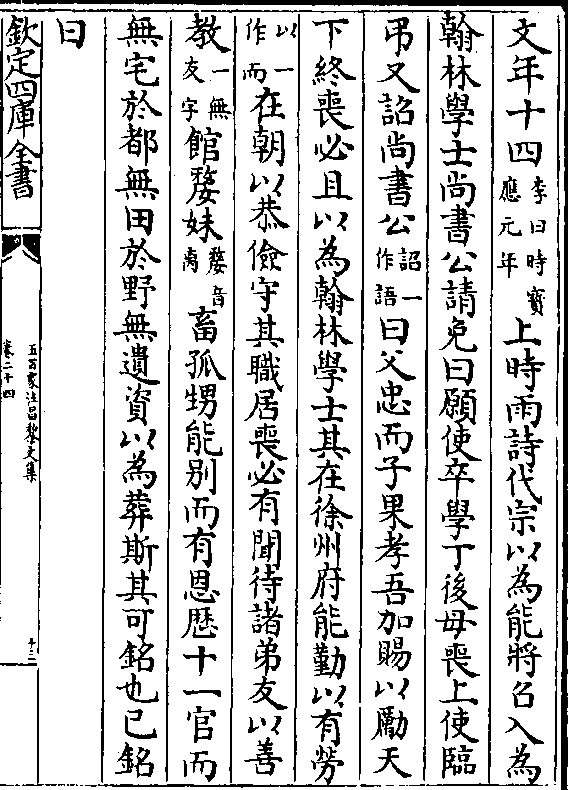 文年十四李曰時寳應元年上時雨詩代宗以為能將召入為
翰林學士尚書公請免曰願使卒學丁後母喪上使臨
弔又詔尚書公詔一作語曰父忠而子果孝吾加賜以勵天
下終喪必且以為翰林學士其在徐州府能勤以有勞
以一作而在朝以恭儉守其職居喪必有聞待諸弟友以善
教一無友字館嫠妹嫠音离畜孤甥能别而有恩歴十一官而
無宅於都無田於野無遺資以為葬斯其可銘也已銘
曰
欽定四庫全書
五百家注昌黎文集
卷二十四
十二